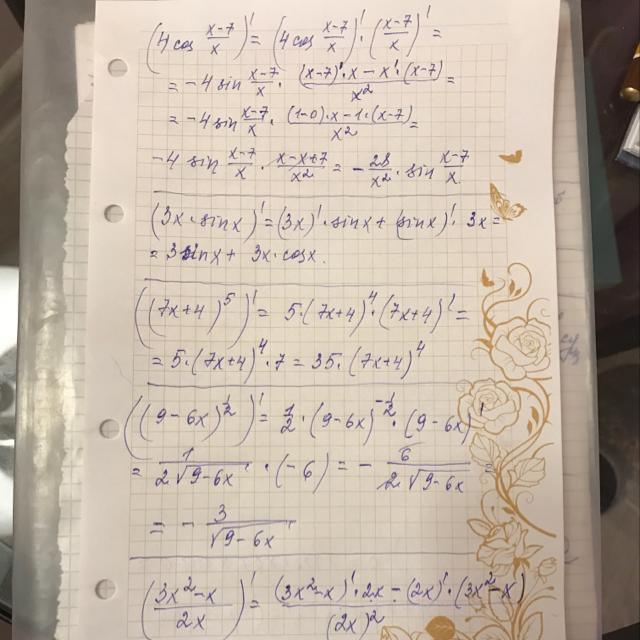 (4 cos (x-7)/x)' = (4 cos (x-7)/x)' · ((x-7)/x)' =
= -4 sin (x-7)/x · ((x-7)' · x - x' · (x-7))/x² =
= -4 sin (x-7)/x · ((1-0) · x - 1 · (x-7))/x² =
-4 sin (x-7)/x · (x-x+7)/x² = - 28/x² · sin (x-7)/x
(3x · sinx)' = (3x)' · sinx + (sinx)' · 3x =
= 3 sinx + 3x · cosx.
((7x+4)⁵)' = 5 · (7x+4)⁴ · (7x+4)' =
= 5 · (7x+4)⁴ · 7 = 35 · (7x+4)⁴
((9-6x)^(1/2))' = 1/2 · (9-6x)^(-1/2) · (9-6x)'
= 1/(2√(9-6x)) · (-6) = - 6/(2√(9-6x)) =
= - 3/√(9-6x)
((3x²-x)/2x)' = ((3x²-x)' · 2x - (2x)' · (3x²-x))/(2x)²